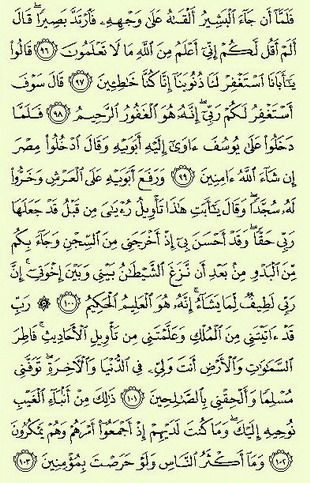 فَلَمَّآ أَن جَآءَ ٱلْبَشِيرُ أَلْقَىٰهُ عَلَىٰ وَجْهِهِۦ فَٱرْتَدَّ بَصِيرًا ۖ قَالَ
أَلَمْ أَقُل لَّكُمْ إِنِّىٓ أَعْلَمُ مِنَ ٱللَّهِ مَا لَا تَعْلَمُونَ ﴿٩٦﴾ قَالُوا۟
يَـٰٓأَبَانَا ٱسْتَغْفِرْ لَنَا ذُنُوبَنَآ إِنَّا كُنَّا خَـٰطِـِٔينَ ﴿٩٧﴾ قَالَ سَوْفَ
أَسْتَغْفِرُ لَكُمْ رَبِّىٓ ۖ إِنَّهُۥ هُوَ ٱلْغَفُورُ ٱلرَّحِيمُ ﴿٩٨﴾ فَلَمَّا
دَخَلُوا۟ عَلَىٰ يُوسُفَ ءَاوَىٰٓ إِلَيْهِ أَبَوَيْهِ وَقَالَ ٱدْخُلُوا۟ مِصْرَ
إِن شَآءَ ٱللَّهُ ءَامِنِينَ ﴿٩٩﴾ وَرَفَعَ أَبَوَيْهِ عَلَى ٱلْعَرْشِ وَخَرُّوا۟
لَهُۥ سُجَّدًا ۖ وَقَالَ يَـٰٓأَبَتِ هَـٰذَا تَأْوِيلُ رُءْيَـٰىَ مِن قَبْلُ قَدْ جَعَلَهَا
رَبِّى حَقًّا ۖ وَقَدْ أَحْسَنَ بِىٓ إِذْ أَخْرَجَنِى مِنَ ٱلسِّجْنِ وَجَآءَ بِكُم
مِّنَ ٱلْبَدْوِ مِنۢ بَعْدِ أَن نَّزَغَ ٱلشَّيْطَـٰنُ بَيْنِى وَبَيْنَ إِخْوَتِىٓ ۚ إِنَّ
رَبِّى لَطِيفٌ لِّمَا يَشَآءُ ۚ إِنَّهُۥ هُوَ ٱلْعَلِيمُ ٱلْحَكِيمُ ﴿١٠٠﴾ ۞ رَبِّ
قَدْ ءَاتَيْتَنِى مِنَ ٱلْمُلْكِ وَعَلَّمْتَنِى مِن تَأْوِيلِ ٱلْأَحَادِيثِ ۚ فَاطِرَ
ٱلسَّمَـٰوَٰتِ وَٱلْأَرْضِ أَنتَ وَلِىِّۦ فِى ٱلدُّنْيَا وَٱلْـَٔاخِرَةِ ۖ تَوَفَّنِى
مُسْلِمًا وَأَلْحِقْنِى بِٱلصَّـٰلِحِينَ ﴿١٠١﴾ ذَٰلِكَ مِنْ أَنۢبَآءِ ٱلْغَيْبِ
نُوحِيهِ إِلَيْكَ ۖ وَمَا كُنتَ لَدَيْهِمْ إِذْ أَجْمَعُوٓا۟ أَمْرَهُمْ وَهُمْ يَمْكُرُونَ
﴿١٠٢﴾ وَمَآ أَكْثَرُ ٱلنَّاسِ وَلَوْ حَرَصْتَ بِمُؤْمِنِينَ ﴿١٠٣﴾